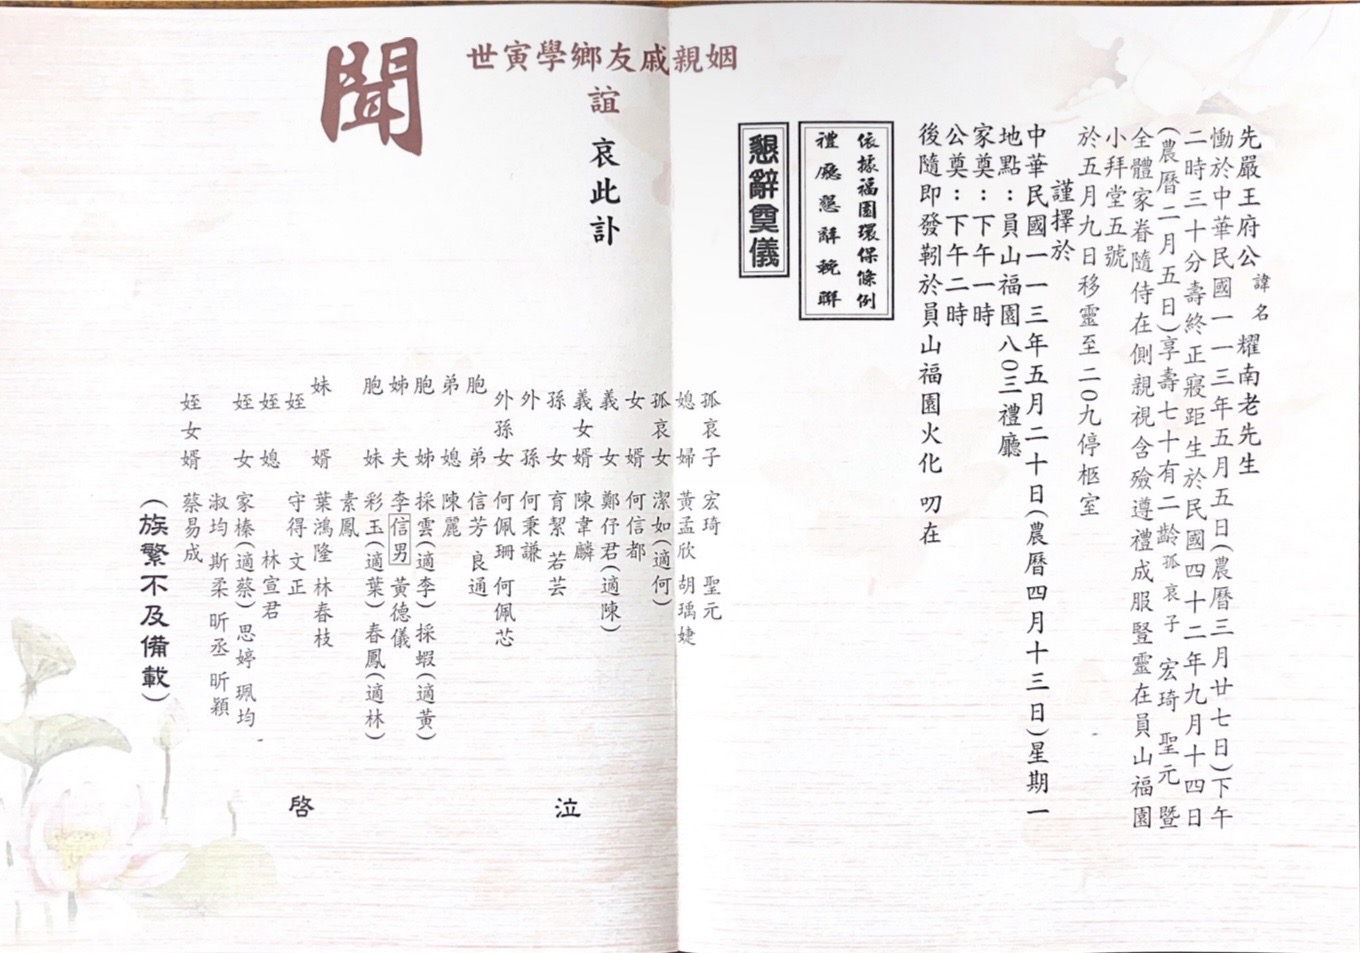 先嚴王府公諱名耀南老先生
慟於中華民國一一三年五月五日(農曆三月廿七日)下午
二時三十分壽終正寢距生於民國四十二年九月十四日
(農曆二月五日)享壽七十有二齡孤哀子 宏琦 聖元 暨
全體家眷隨侍在側親視含殮遵禮成服豎靈在員山福園
小拜堂五號
於五月九日移靈至二〇九停柩室
謹擇於
中華民國一一三年五月二十日(農曆四月十三日)星期一
地點：員山福園八〇三禮廳
家奠：下午一時
公奠：下午二時
後隨即發靷於員山福園火化 叨在
依據福園環保條例
禮廳懇辭輓聯
懇辭奠儀
姻親戚友鄉學寅世
誼 哀此訃
聞
孤哀子 宏琦 聖元
媳婦 黃孟欣 胡瑀婕
孤哀女 潔如(適何)
女婿 何信都
義女 鄭伃君(適陳)
義女婿 陳韋麟
孫女 育絜 若芸
外孫 何秉謙
外孫女 何佩珊 何佩芯
胞弟 信芳 良通
弟媳 陳麗
胞姊 採雲(適李) 採蝦(適黃)
姊夫 李信男 黃德儀
胞妹 彩玉(適葉) 春鳳(適林)
素鳳
妹婿 葉鴻隆 林春枝
姪 守得 文正
姪媳 林宣君
姪女 家榛(適蔡) 思婷 珮均
淑均 斯柔 昕丞 昕穎
姪女婿 蔡易成
(族繁不及備載)
泣
啓